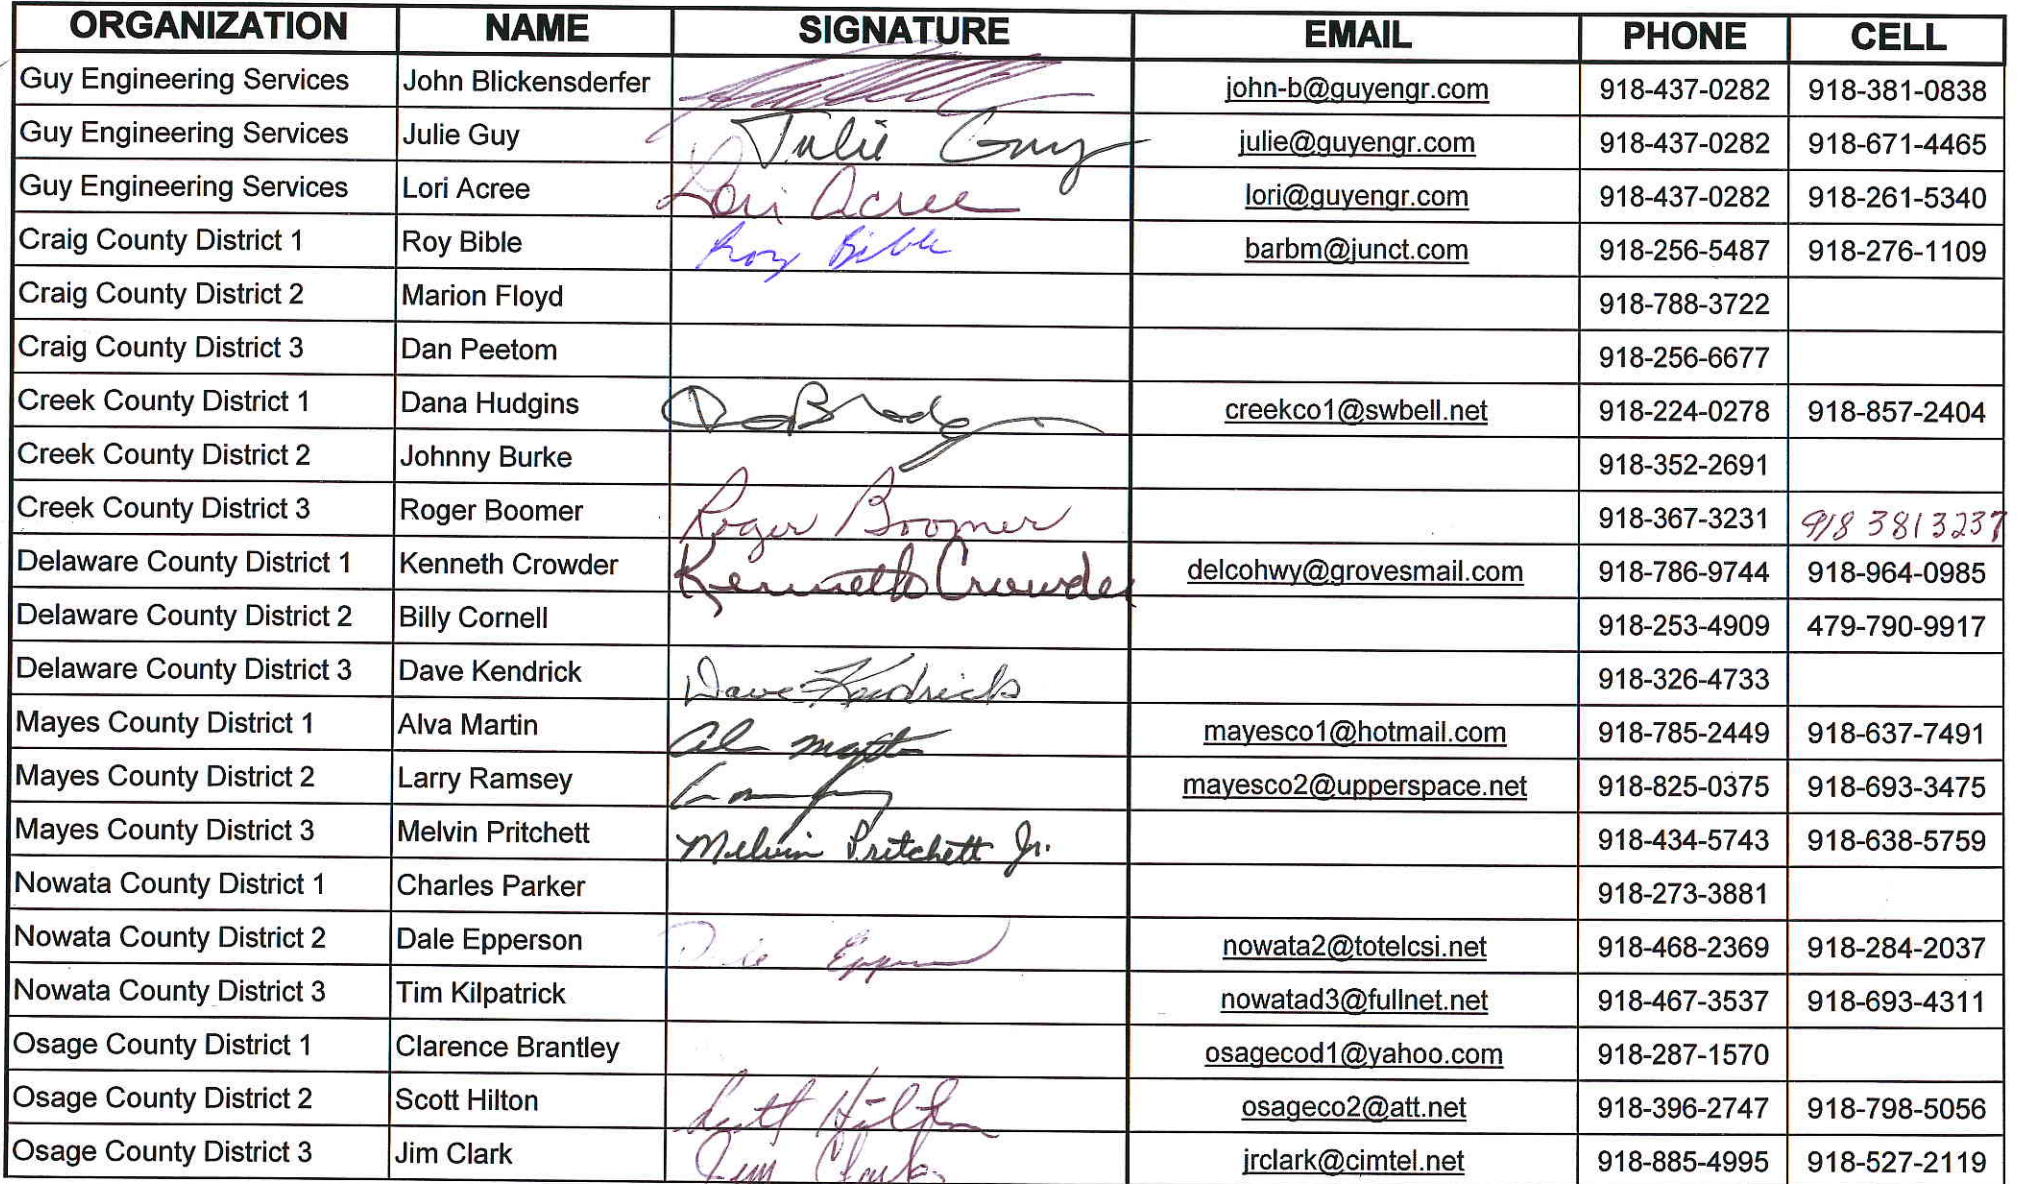 ORGANIZATION NAME SIGNATURE EMAIL PHONE CELL
Guy Engineering Services John Blickensderfer john-b@guyengr.com 918-437-0282 918-381-0838
Guy Engineering Services Julie Guy Julie Guy julie@guyengr.com 918-437-0282 918-671-4465
Guy Engineering Services Lori Acree Lori Acree lori@guyengr.com 918-437-0282 918-261-5340
Craig County District 1 Roy Bible Roy Bible barbm@junct.com 918-256-5487 918-276-1109
Craig County District 2 Marion Floyd 918-788-3722
Craig County District 3 Dan Peetom 918-256-6677
Creek County District 1 Dana Hudgins creekco1@swbell.net 918-224-0278 918-857-2404
Creek County District 2 Johnny Burke 918-352-2691
Creek County District 3 Roger Boomer Roger Boomer 918-367-3231 918 381 3237
Delaware County District 1 Kenneth Crowder Kenneth Crowder delcohwy@grovesmail.com 918-786-9744 918-964-0985
Delaware County District 2 Billy Cornell 918-253-4909 479-790-9917
Delaware County District 3 Dave Kendrick Dave Kendrick 918-326-4733
Mayes County District 1 Alva Martin mayesco1@hotmail.com 918-785-2449 918-637-7491
Mayes County District 2 Larry Ramsey mayesco2@upperspace.net 918-825-0375 918-693-3475
Mayes County District 3 Melvin Pritchett Melvin Pritchett Jr. 918-434-5743 918-638-5759
Nowata County District 1 Charles Parker 918-273-3881
Nowata County District 2 Dale Epperson Dale nowata2@totelcsi.net 918-468-2369 918-284-2037
Nowata County District 3 Tim Kilpatrick nowatad3@fullnet.net 918-467-3537 918-693-4311
Osage County District 1 Clarence Brantley osagecod1@yahoo.com 918-287-1570
Osage County District 2 Scott Hilton Scott Hilton osageco2@att.net 918-396-2747 918-798-5056
Osage County District 3 Jim Clark Jim Clark jrclark@cimtel.net 918-885-4995 918-527-2119